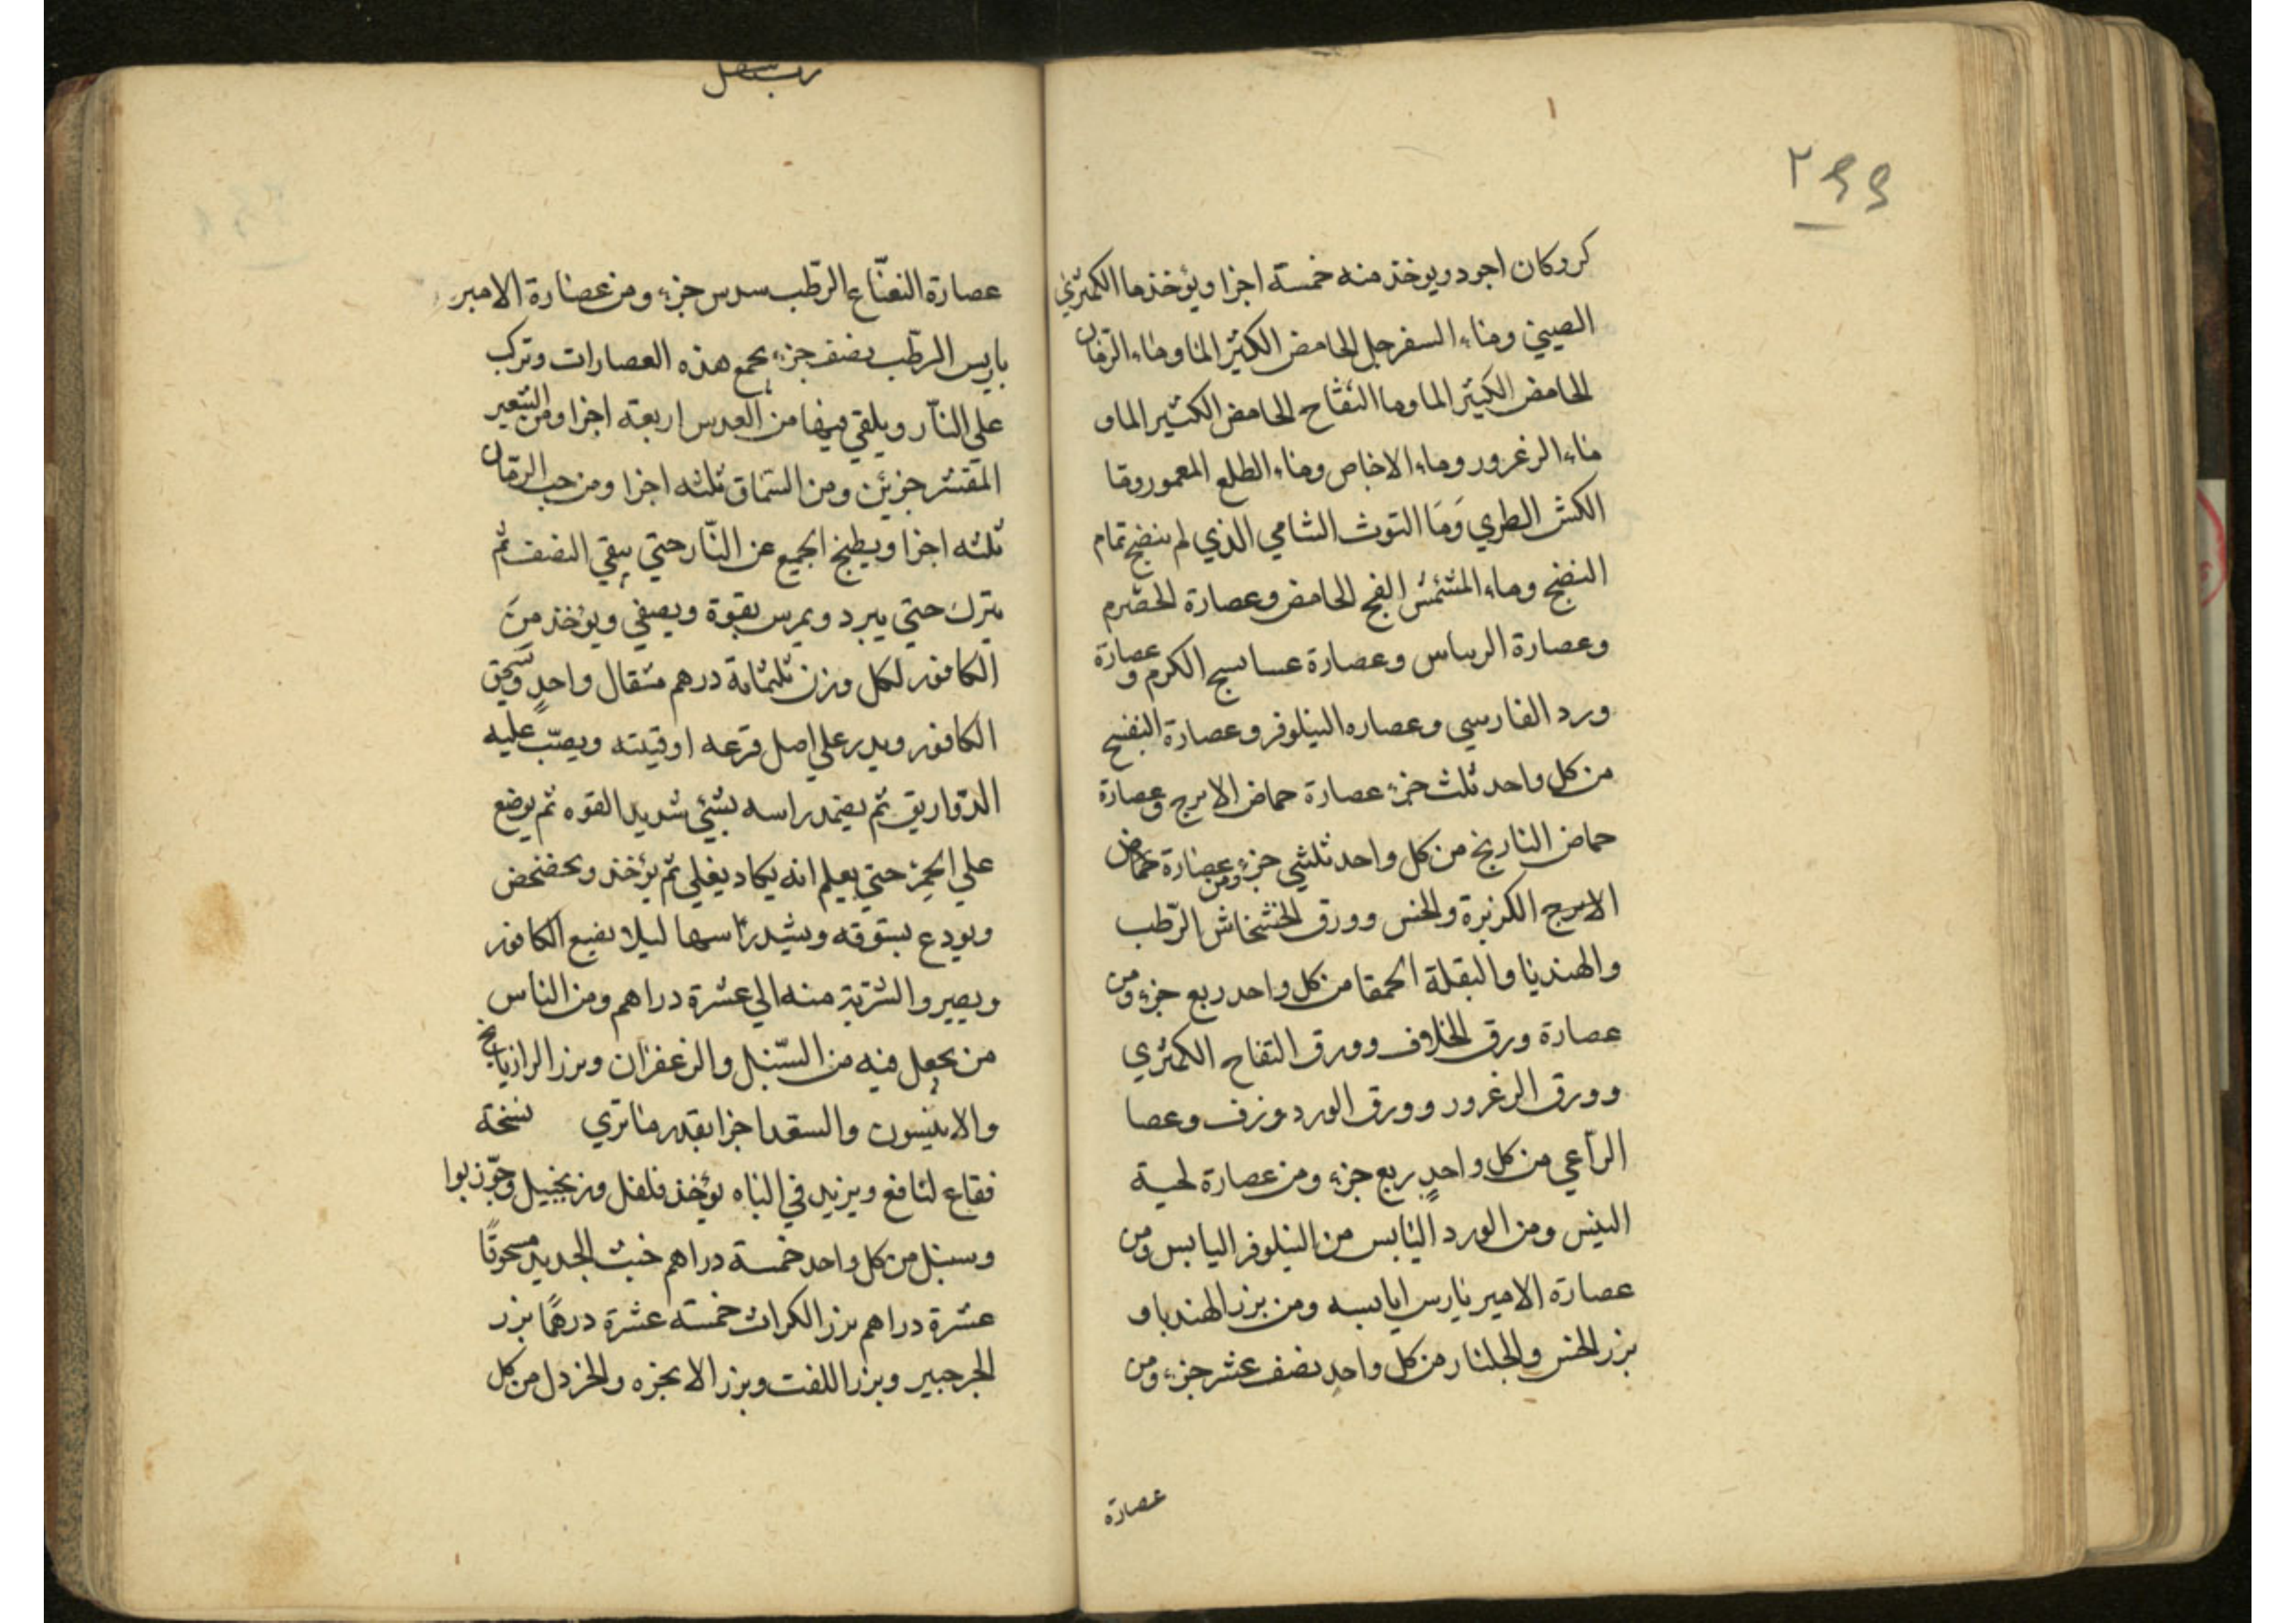 كر وكان اجود ويوخذ منه خمسة اجزا ويؤخذ ما الكمثري
الصيني وماء السفرجل الحامض الكثير الما وماء الرمان
الحامض الكثير الما وما التفاح الحامض الكثير الما و
ماء الزعرور وماء الاجاص وماء الطلع المعمور وما
الكش الطري وَمَا التوث الشامي الذي لم ينضج تمام
النضج وماء المشمش الفج الحامض وعصارة الحصرم
وعصارة الريباس وعصارة عساليج الكرم وعصارة
ورد الفارسي وعصاره النيلوفر وعصارة البنفسج
من كل واحد ثلث جزء عصارة حماض الاترج وعصارة
حماض النارنج من كل واحد ثلثي جزء ومن عصارة حماض
الاترج الكزبرة والخس وورق الخشخاش الرّطب
والهندبا والبقلة الحمقا من كل واحد ربع جزء ومن
عصارة ورق الخلاف وورق التفاح الكمثري
وورق الزعرور وورق الورد وزف وعصا
الرّاعي من كل واحدٍ ربع جزء ومن عصارة لحية
التيس ومن الورد اليابس من النيلوفر اليابس ومن
عصارة الامير باريس ايابسه ومن بزر الهندبا و
بزر الخس والجلنار من كل واحدٍ نصف عشر جزء ومن
عصارة
عصارة النعنّاع الرّطب سدس جزء ومن عصارة الامبر
باريس الرطب نصف جزء يجمع هذه العصارات وتركب
علي النّار ويلقي فيها من العدس اربعة اجزا ومن الشعير
المقشر جزئين ومن السّماق ثلثه اجزا ومن حب الرمان
ثلثه اجزا ويطبخ الجميع عن النّار حتي يبقي النصف ثم
يترك حتي يبرد ويمرس بقوة ويصفي ويؤخذ منَ
الكافور لكل وزن ثلثمائة درهم مثقال واحدٍ ويسحق
الكافور ويدر علي اصل قرعه او قنينه ويصبّ عليه
الدّواريق ثم يضمد راسه بشئي شديد القوه ثم يوضع
علي الجمر حتي يعلم انه يكاد يغلي ثم يؤخذ ويخضخض
ويودع بستوقه ويشد رأسها ليلا يضيع الكافور
ويصير والشربة منه الي عشرة دراهم ومن الناس
من يجعل فيه من السّنبل والزعفران وبزر الرازيانج
والانيسون والسعد اجزا بقدر ما تري نسخة
فقاع لنافع ويزيد في الباه يؤخذ فلفل وزنجبيل وجّوزبوا
وسنبل من كل واحد خمسة دراهم خبث الحديد مسحوقًا
عشرة دراهم بزر الكراث خمسة عشرة درهمًا بزر
الجرجير وبزر اللفت وبزر الانجزه والخردل من كل